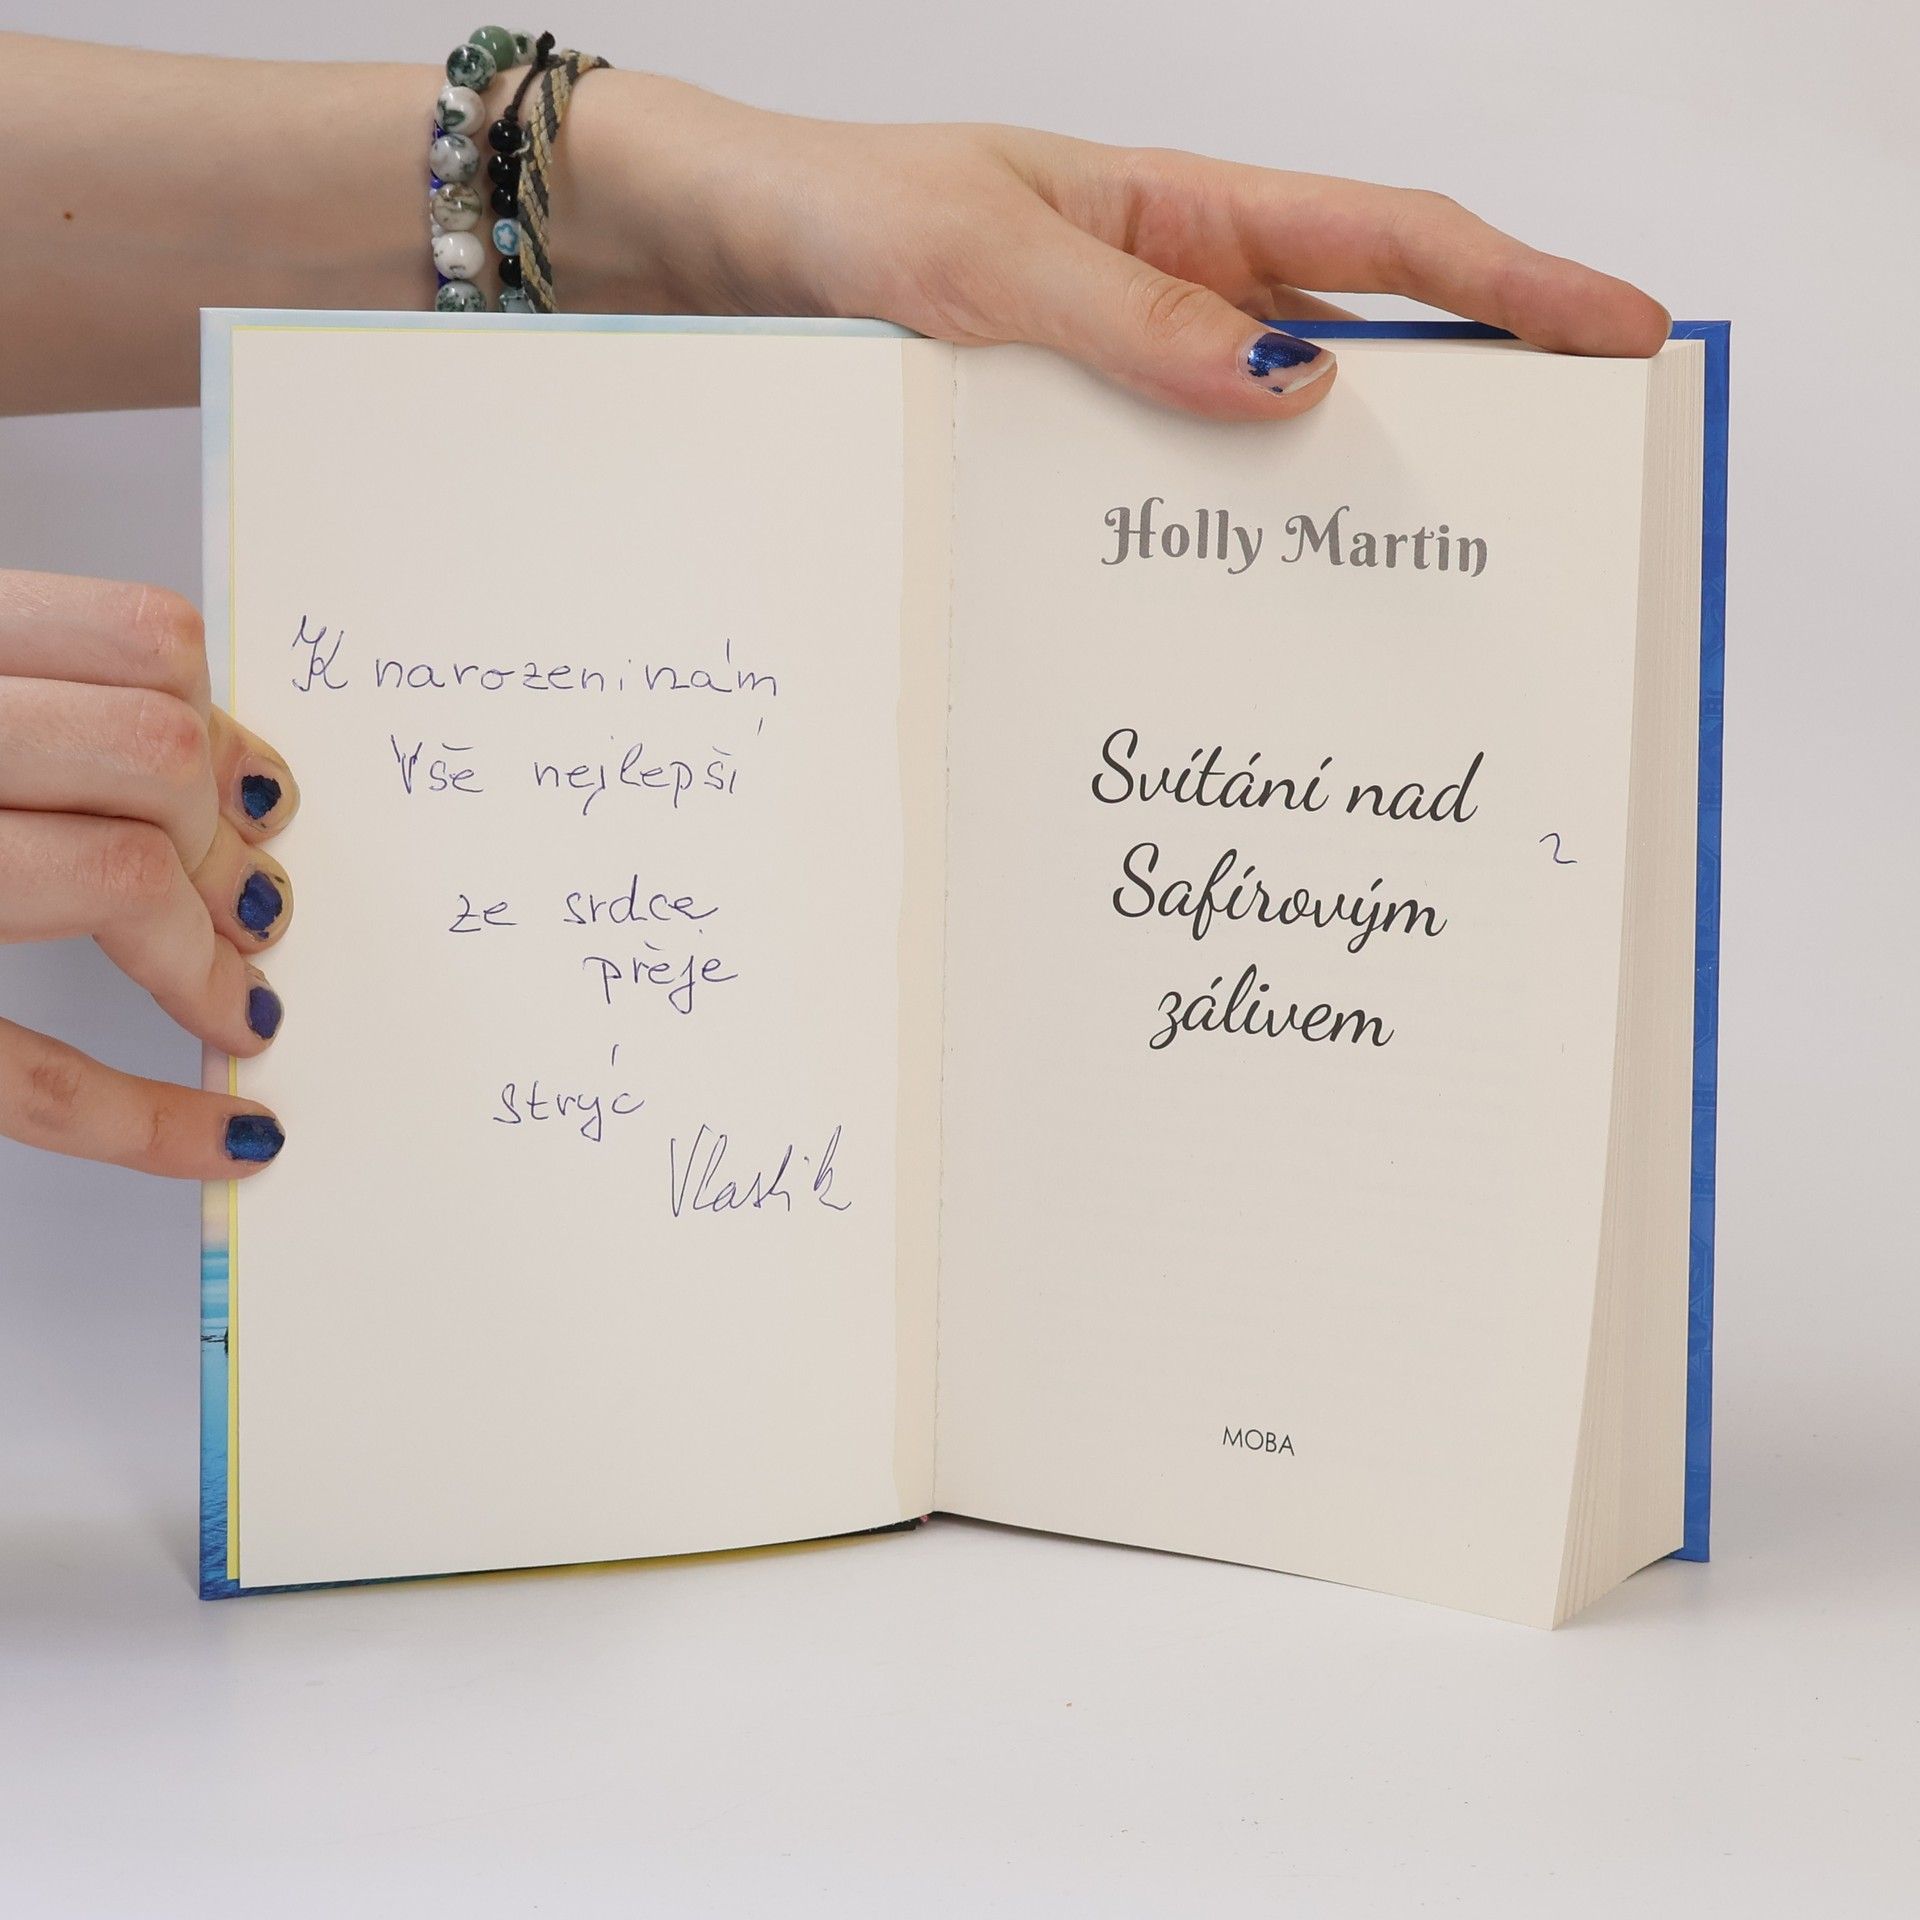 K narozeninám
Vše nejlepší
ze srdce
přeje
strýc
Vlastik
Holly Martin
Svítání nad
Safírovým
zálivem
2
MOBA